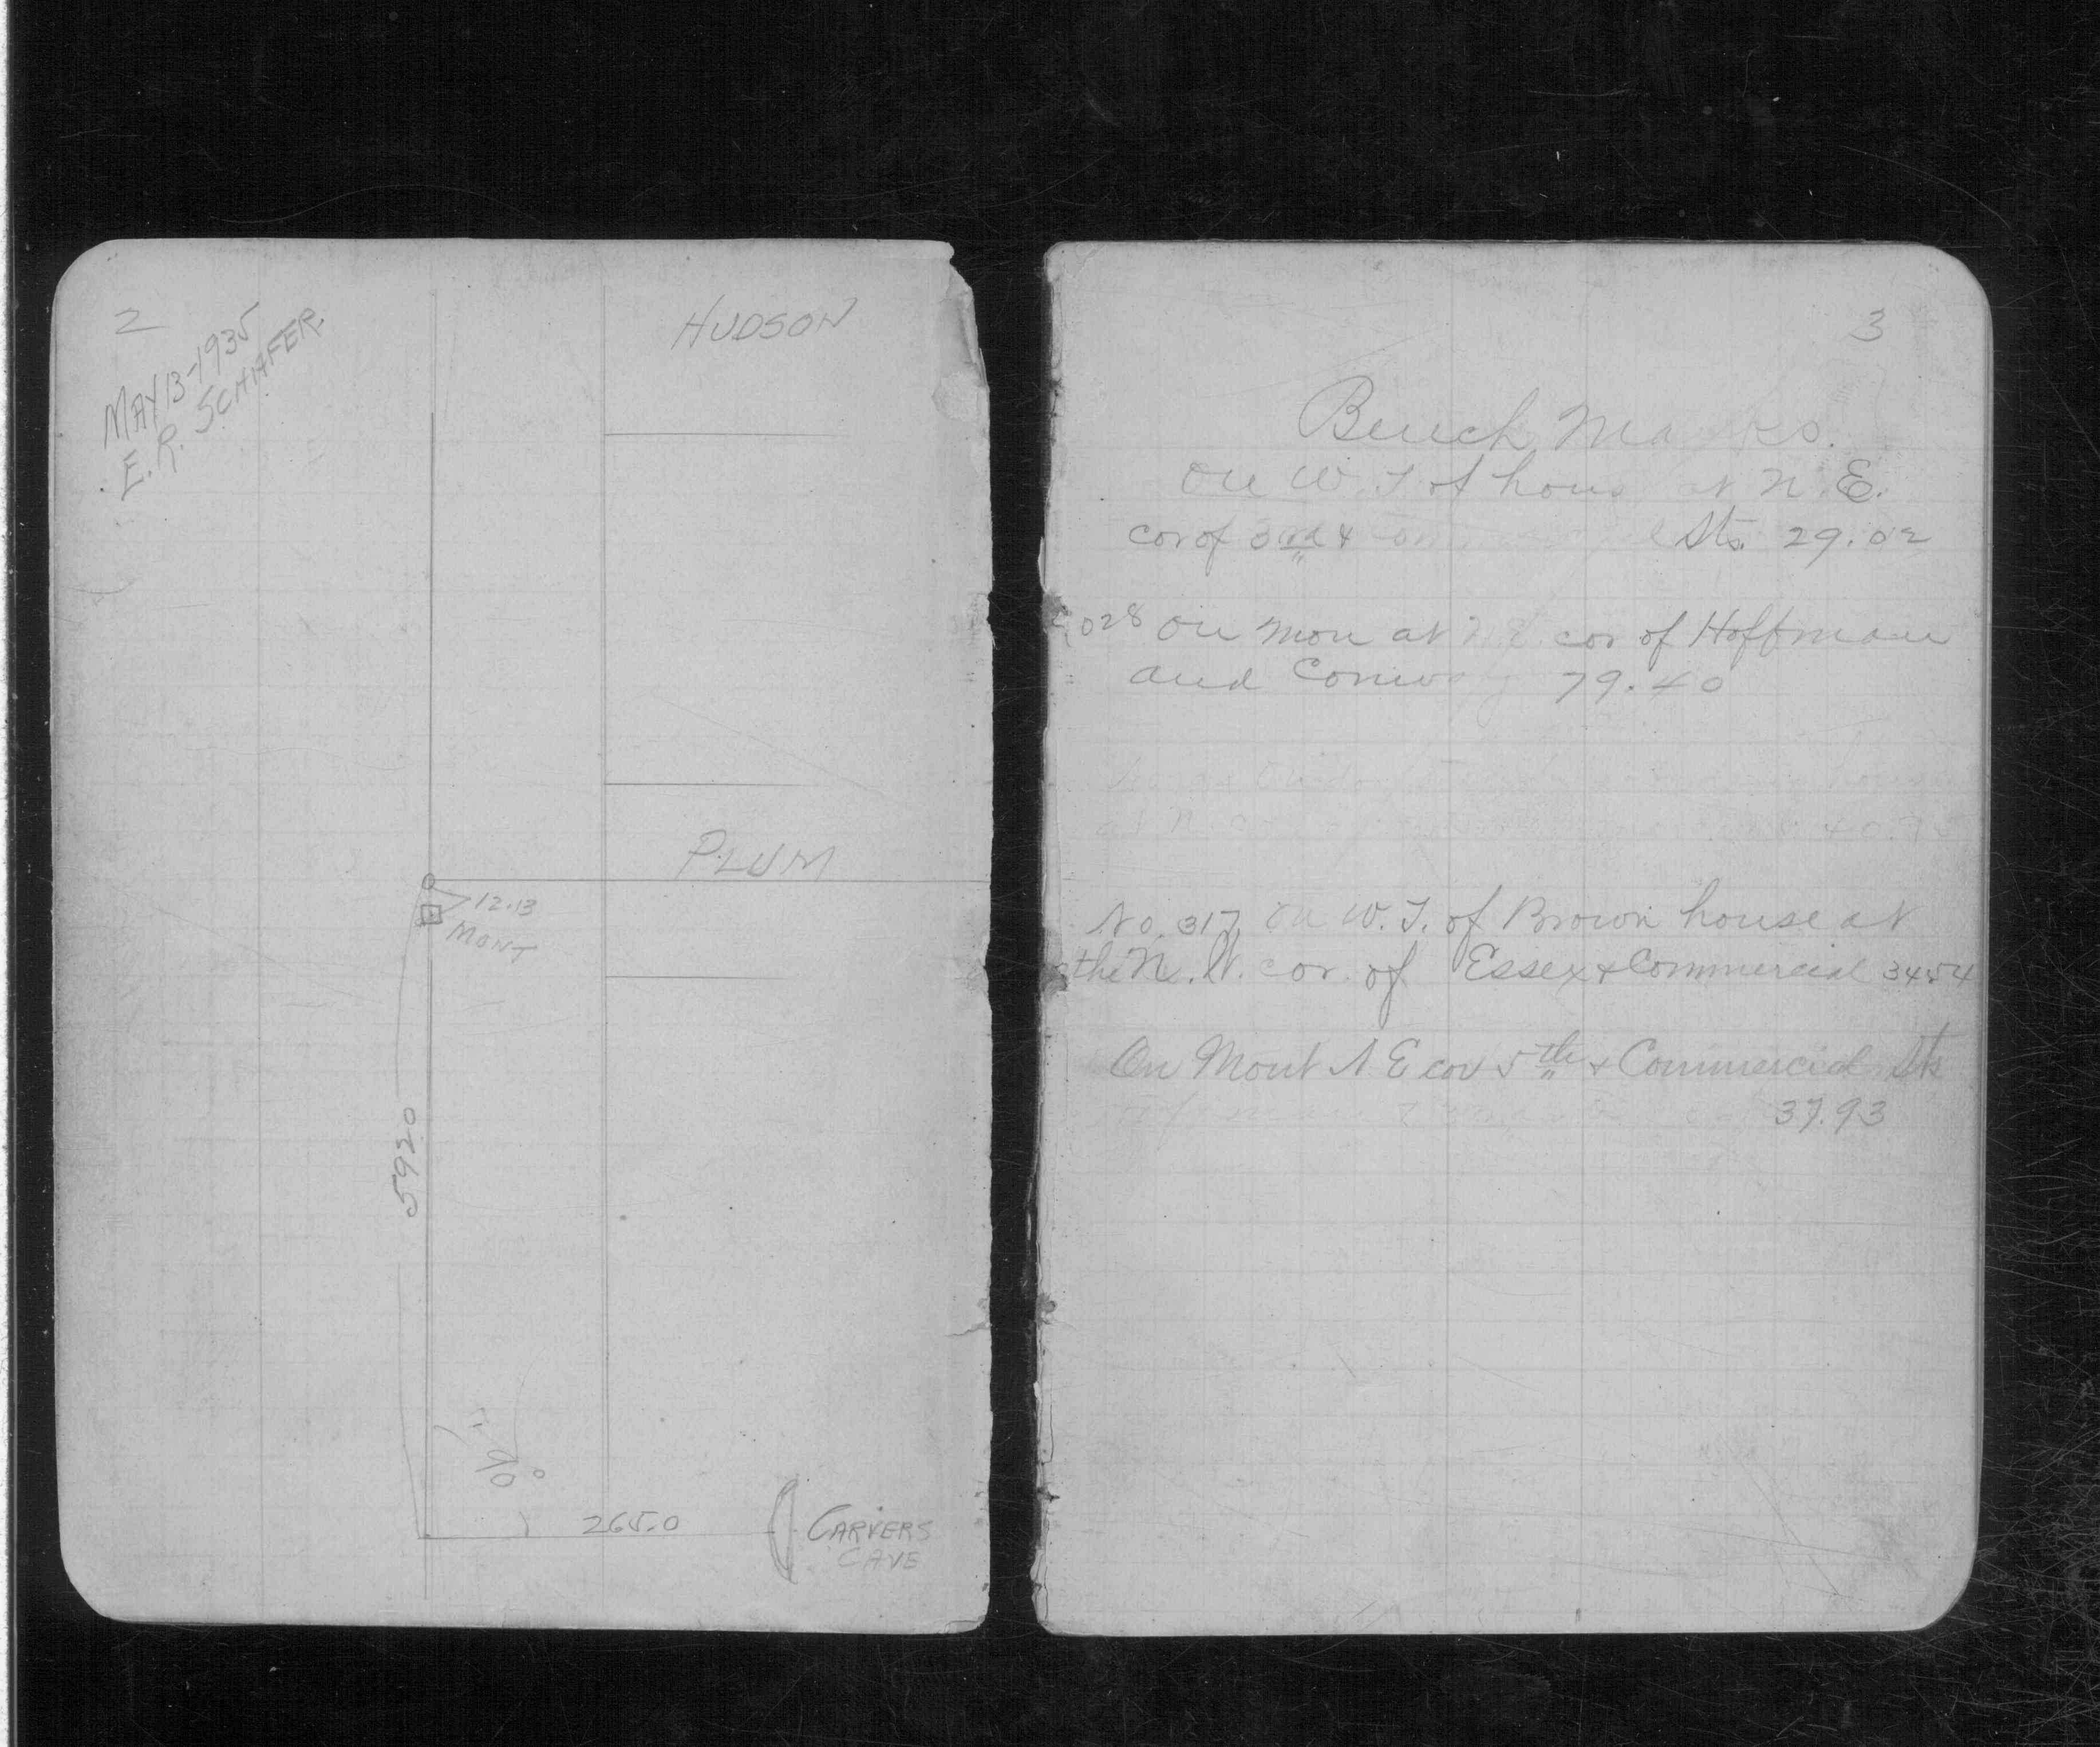 2
MAY 13-1935
E. R. SCHAFER.
HUDSON
PLUM
12.13
MONT
5920
90°
265.0
CARVERS
CAVE
3
Bench Marks.
On W. T. of hous at N. E.
cor of 3rd & Sts. 29.02
028 On Mon at N.E. cor of Hoffman
and Conway 79.40
at N. 40.
No. 317, On W. T. of Brown house at
the N. W. cor. of Essex & Commercial 34.54
On Mont N E cor 5th & Commercial Sts
37.93